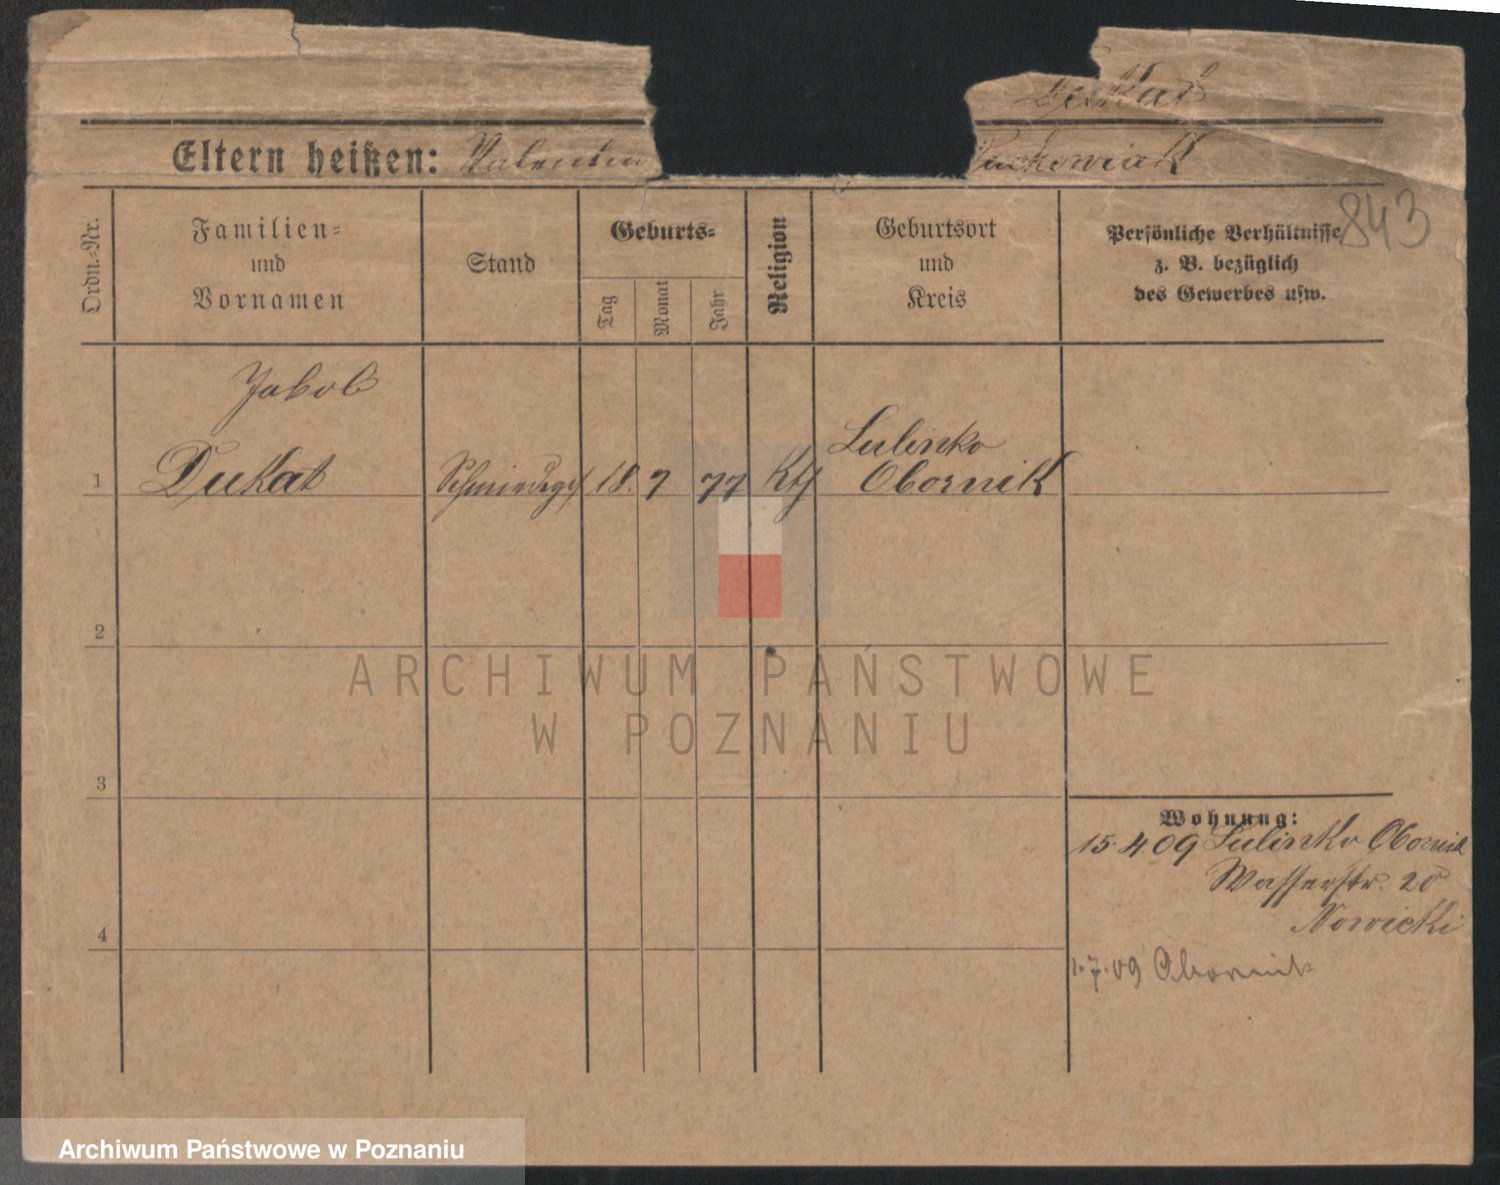 Dukat
Eltern heißen: Valentin
843
Ordn.-Nr.
Familien-
und
Vornamen
Stand
Geburts-
Tag
Monat
Jahr
Religion
Geburtsort
und
Kreis
Persönliche Verhältnisse
z. B. bezüglich
des Gewerbes usw.
Jakob
Lulinko
1 Dukat Schmiedeges 18. 7 77 Kth Obornik
2
ARCHIWUM PAŃSTWOWE
W POZNANIU
3
Wohnung:
15 4 09 Lulinko Obornik
Wasserstr. 20
Nowicki
4
1.7.09 Obornik
Archiwum Państwowe w Poznaniu